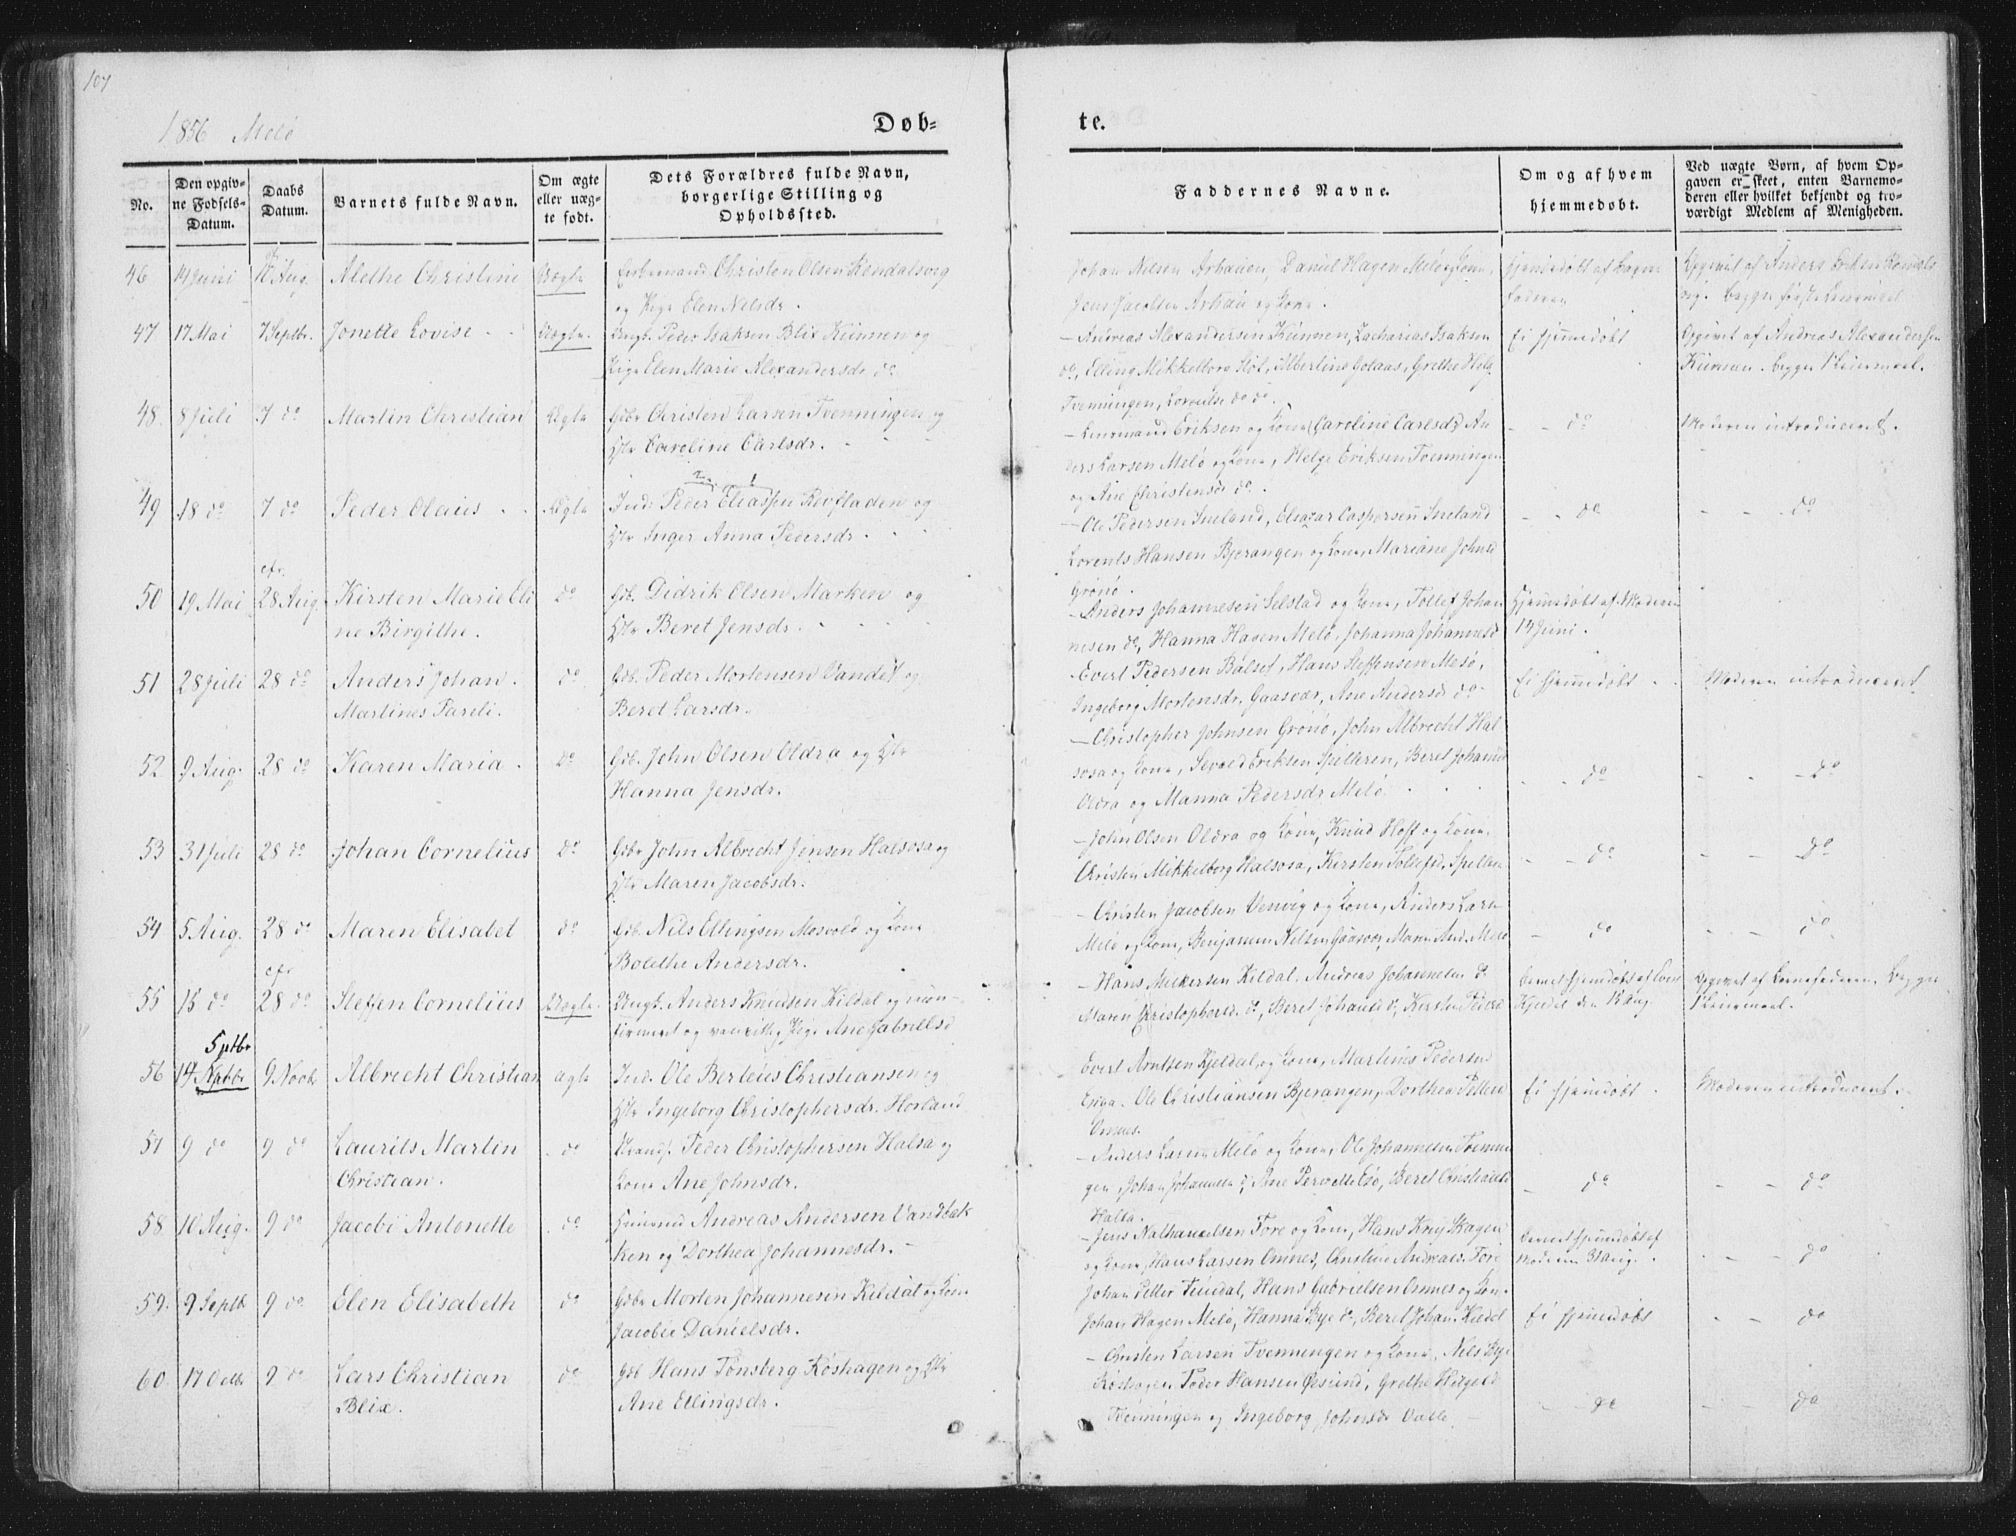 107
1856 Melö
Døb-
te.
No.
Den opgiv-
ne Fødsels-
Datum.
Daabs
Datum.
Barnets fulde Navn.
Om ægte
eller uæg-
te født.
Dets Forældres fulde Navn,
borgerlige Stilling og
Opholdssted.
Faddernes Navne.
Om og af hvem
hjemmedøbt.
Ved uægte Børn, af hvem Op-
gaven er skeet, enten Barnemo-
deren eller hvilket bekjendt og tro-
værdigt Medlem af Menigheden.
46 14 Juni Aug. Alethe Christine Uægte Christen Olsen Kendalsvig
og Pige Elen Nilsdr.
Johan Nilsen Arhauen, Daniel Hagen Melö og Kone,
Jens Jacobsen Arhau og Kone.
47 17 Mai 7 Septbr. Jonette Lovise Uægte Ungk. Peder Isaksen Blix Kunnen og
Pige Elen Marie Alexandersdr do
Andreas Alexandersen Kunnen, Zacharias Isaksen
do, Elling Mikkelborg Stöt, Albertine Golaas, Grethe Helg.
Tvenningen, do do.
Ei hjemdöbt
Opgivet af Andreas Alexandersen
Kunnen. begges 1 Leiermaal.
48 8 Juli 7 do Martin Christian Ægte Gbr Christen Larsen Tvenningen og
Hr Caroline Carlsdr.
Eriksen og Kone Caroline Carlsd, An
ders Larsen Melö og Kone, Helge Eriksen Tvenningen
og Ane Christensdr do.
do
Moderen introduceret.
49 18 do 7 do Peder Olaus Ægte Ind: Peder Eliassen Reifladen og
Hr Inger Anna Pedersdr
Ole Pedersen Ineland, Eleazar Caspersen Ineland
Lorents Hansen Bjerangen og Kone, Mariane Johnsd
Grönö.
do
do
cfr.
50 19 Mai 28 Aug. Kirsten Marie Eli
ne Birgithe.
do Gbr. Didrik Olsen Marken og
Hr Beret Jensdr.
Anders Johannesen Selstad og Kone, Tollef Johan
nesen do, Hanna Hagen Melö, Johanna Johannesd
Hjemdöbt af Moderen
14 Juni.
51 28 Juli 28 do Anders Johan
Martines Pareli.
do Gbr. Peder Mortensen Vandet og
Beret Larsdr.
Evert Pedersen Balset, Hans Steffensen Mesö,
Ingeborg Mortensdr. Gaasvær, Ane Andersdr do
Ei hjemdöbt
Moderen introduceret
52 9 Aug. 28 do Karen Maria do Gbr. John Olsen Oldra og Hr
Hanna Jensdr.
Christopher Johnsen Grönö, John Albrecht Hal
sosa og Kone, Eriksen Spilderen, Beret Johansd
Oldra og Manna Pedersdr Melö
do
do
53 31 Juli 28 do Johan Cornelius do Gbr John Albrecht Jensen Halsosa og
Hr Maren Jacobsdr.
John Olsen Oldra og Kone, Knud Hoff og Kone,
Christen Mikkelborg Halsosa, Kirsten Tollefsd. Spilder
do
do
54 5 Aug. 28 do Maren Elisabet do Gbr. Nils Ellingsen Mosvold og Kone
Bolethe Andersdr.
Christen Jacobsen Venvig og Kone, Anders Larsn
Melö og Kone, Benjamin Nilsen Gaasvær, Maren And. Melö
do
do
cfr
55 15 do 28 do Steffen Cornelius Uægte Ungk. Anders Knudsen Kildal og
Pige Ane Gabrielsd
Hans Mikkelsen Kildal, Andreas Johannesen do
Maren Christophersd. do, Beret Johansd do, Kirsten Pedersd
Barnet hjemdöbt af
Kjeldal den 18 Aug.
Opgivet af Barnefaderen. Begges
1 Leiermaal.
Sptbr
56 14 Nvbr 9 Novbr Albrecht Christian ægte Ind. Ole Berteus Christiansen og
Hr Ingeborg Christophersdr. Horland
Evert Arntsen Kjeldal og Kone, Martinus Pedersen
Esöen. Ole Christiansen Bjerangen, Dorthea Pettersd
Omnes.
Ei hjemdöbt
Moderen introduceret.
57 9 do 9 do Laurits Martin
Christian.
do Strands. Peder Christophersen Halsa og
Kone Ane Johnsdr.
Anders Larsen Melö og Kone, Ole Johannesen Tvennin
gen, Johan Johannesen do, Ane Esö, Beret Christiansd
Halsa.
do
do
58 10 Aug. 9 do Jacobi Antonette do Andreas Andersen Vandbak
ken og Dorthea Johannesdr.
Jens Nathanaelsen Fore og Kone, Hans Krey Skagen
og Kone, Hans Larsen Omnes, Christine Andreasd. Fore
Barnet hjemdöbt af
Moderen 31 Aug.
do
59. 9 Septb 9 do. Elen Elisabeth do Gbr Morten Johannesen Kildal og Kone
Jacobie Danielsdr.
Johan Petter Finddal, Hans Gabrielsen Omnes og Kone
Johan Hagen Melö, Hanna Bye do, Beret Johan. Kildal
Ei hjemdöbt
do
60 17 Octbr 9 do Lars Christian
Blix.
do Gbr Hans Tönsberg Röshagen og Hr
Ane Ellingsdr.
Christen Larsen Tvenningen og Kone, Nils Bye
Röshagen, Peder Hansen Öesund, Grethe Helgesd
Tvenningen og Ingeborg Johnsdr
do
do